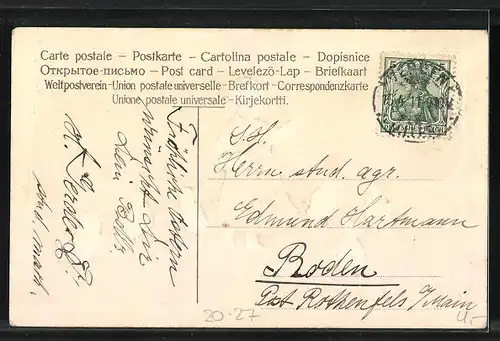 Carte postale – Postkarte – Cartolina postale – Dopisnice
Открытое-письмо – Post card – Levelezö-Lap – Briefkaart
Weltpostverein – Union postale universelle – Brefkort – Correspondenzkarte
Unione postale universale – Kirjekortti.
Fröhliche Ostern
wünscht Dir
Dein
stud. math.
Herrn stud. agr.
Edmund Hartmann
Roden
Pst Rothenfels a/Main
20-27
4,-